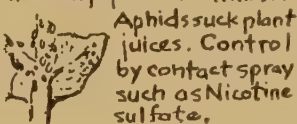 Aphids suck plant
juices. Control
by contact spray
such as Nicotine
sulfate.